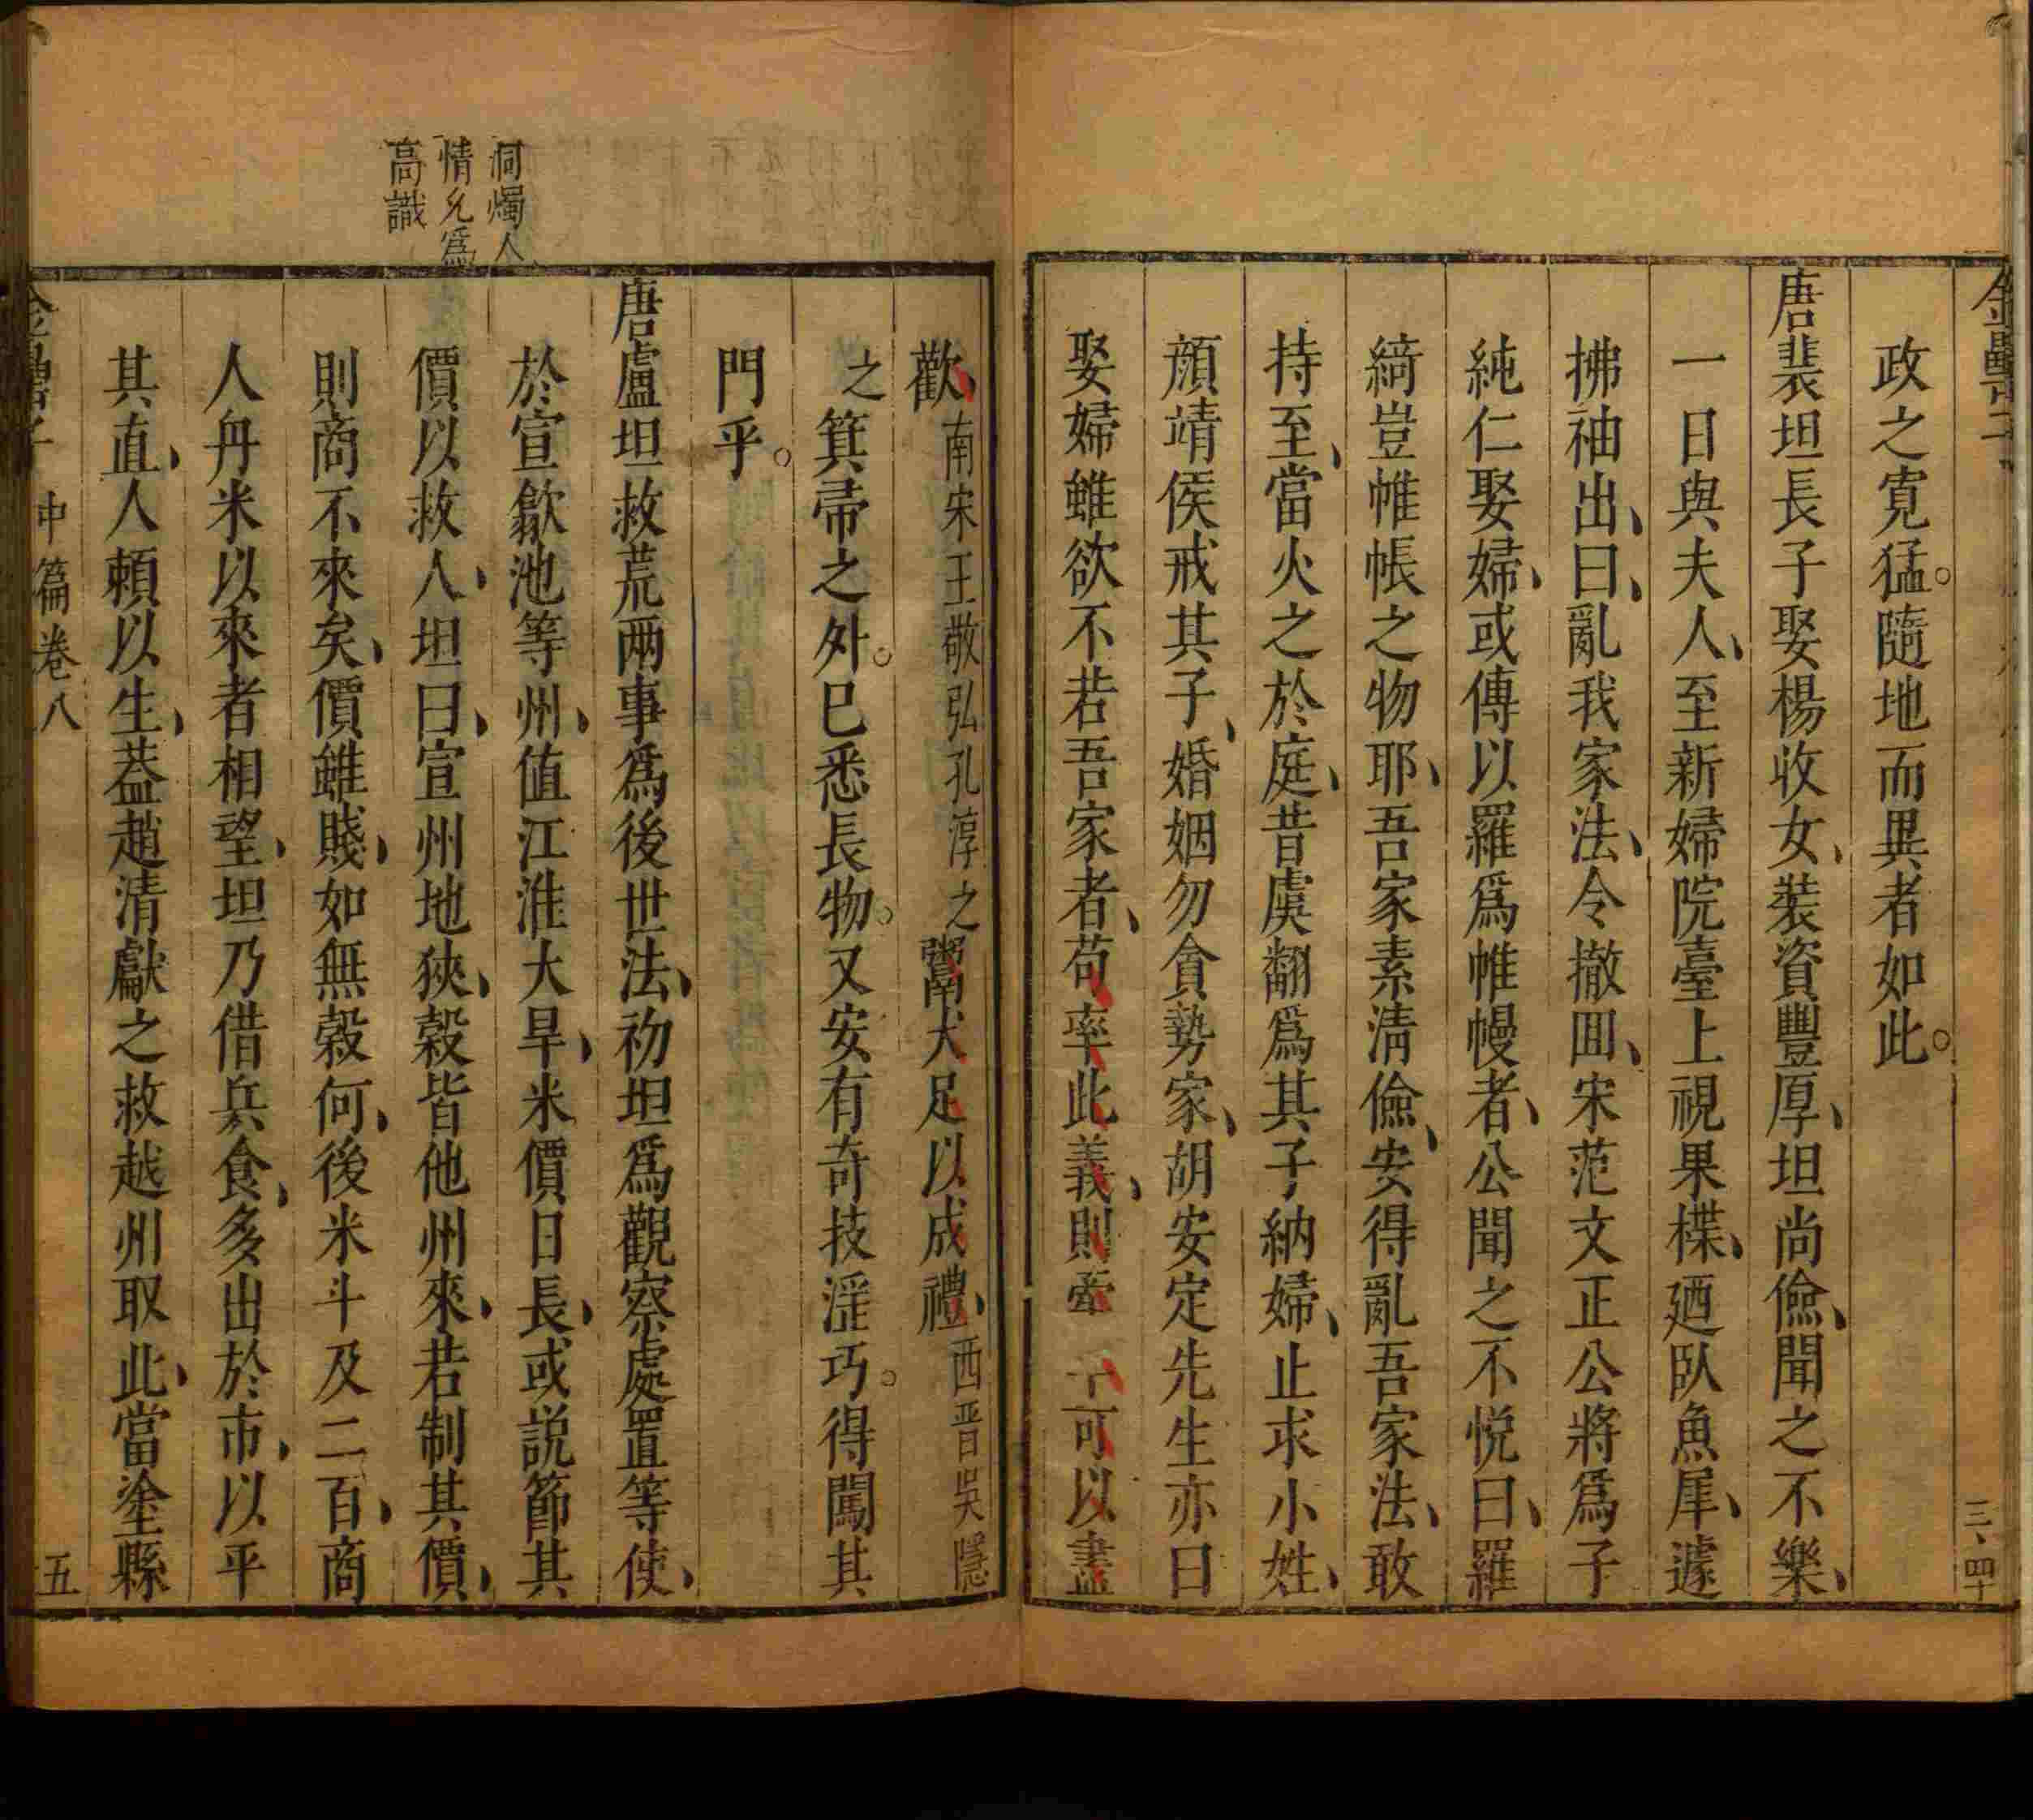 政之寛猛。隨地而異者如此。
唐裴坦長子娶楊收女、裝資豐厚、坦尚儉、聞之不樂、
一日與夫人、至新婦院臺上視果楪、廼臥魚犀、遽
拂袖出、曰、亂我家法、令撤囬、宋范文正公將爲子
純仁娶婦、或傳以羅爲帷幔者、公聞之不悅曰、羅
綺豈帷帳之物耶、吾家素清儉、安得亂吾家法、敢
持至、當火之於庭、昔虞翻爲其子納婦、止求小姓、
顔靖侯戒其子、婚姻勿貪勢家、胡安定先生亦曰
娶婦雖欲不若吾家者、苟率此義、則牽 可以盡
三、四十
洞燭人
情允爲
高識
歡、南宋王敬弘孔淳之鬻犬足以成禮、西晋吳隱
之箕帚之外。已悉長物。又安有奇技淫巧。得闖其
門乎。
唐盧坦救荒兩事爲後世法、初坦爲觀察處置等使、
於宣歙池等州、値江淮大旱、米價日長、或説節其
價以救人、坦曰、宣州地狹、榖皆他州來、若制其價、
則商不來矣、價雖賤、如無榖何、後米斗及二百、商
人舟米以來者相望、坦乃借兵食、多出於市、以平
其直、人頼以生、葢趙清獻之救越州取此、當塗縣
中篇卷八
五